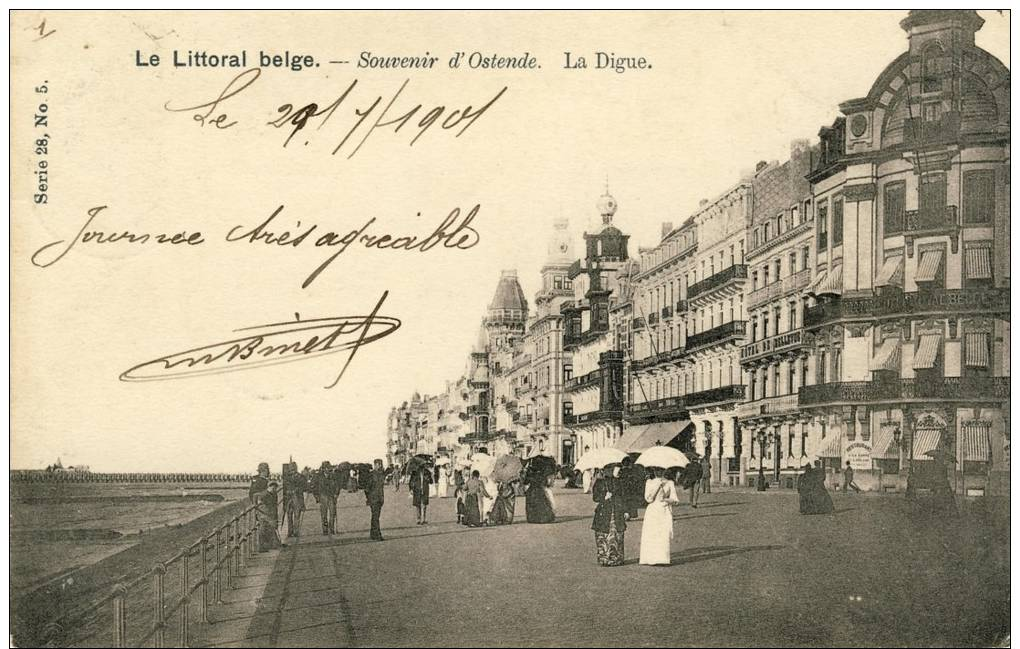 1
Le Littoral belge. — Souvenir d'Ostende. La Digue.
Serie 28, No. 5.
Le 29/7/1901
Journée très agréable
Binet